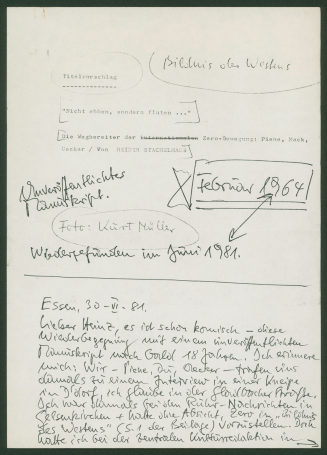 Bildnis des Westens
Titelvorschlag
"Nicht ebben, sondern fluten ..."
Die Wegbereiter der internationalen Zero-Bewegung: Piene, Mack,
Uecker / Von HEINER STACHELHAUS
Unveröffentlichtes
Manuskript.
Februar 1964
Foto: Kurt Müller
Wiedergefunden im Juni 1981.
Essen, 30-VI-81.
Lieber Heinz, es ist schon komisch - diese
Wiederbegegnung mit einem unveröffentlichten
Manuskript nach bald 18 Jahren. Ich erinnere
mich: Wir - Piene, Du, Uecker - trafen uns
damals zu einem Interview in einer Kneipe
in D'dorf, ich glaube in der Gladbacher Straße.
Ich war damals bei den Ruhr-Nachrichten in
Gelsenkirchen + hatte die Absicht, Zero in "Bildnis
des Westens" (s. 1 der Beilage) vorzustellen. Doch
hatte ich bei der zentralen Kulturredaktion in